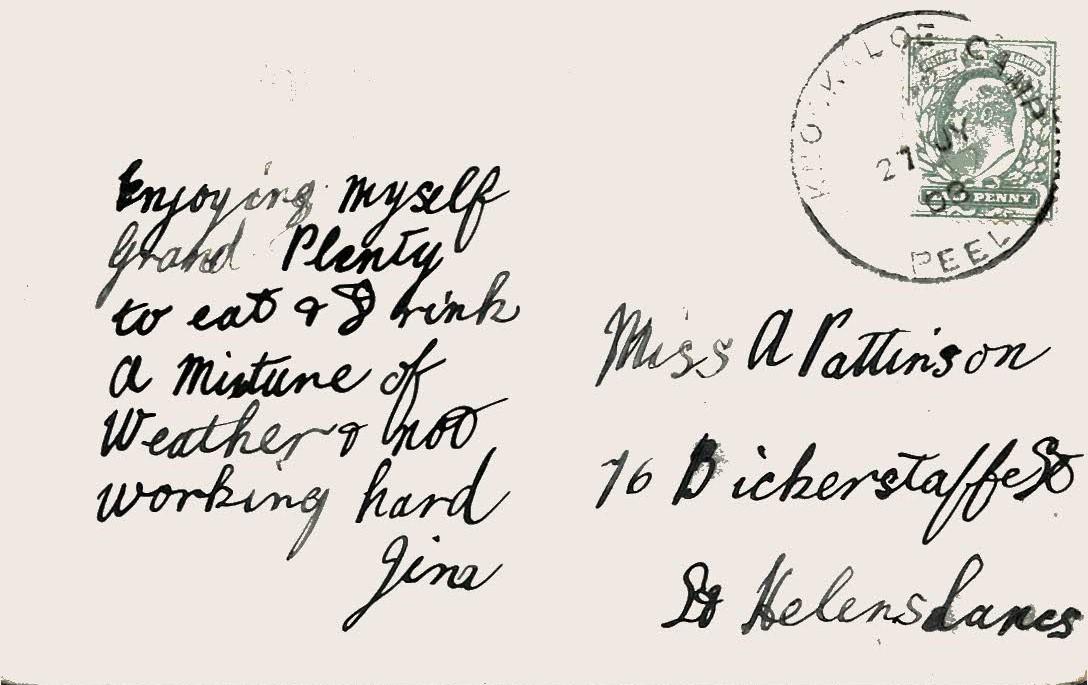 KNOCKALOE CAMP
27 JY
08
PEEL
PENNY
Enjoying myself
Grand Plenty
to eat & Drink
a Mixture of
Weather & not
working hard
Jina
Miss A Pattinson
76 Bickerstaffe St
St Helens Lancs